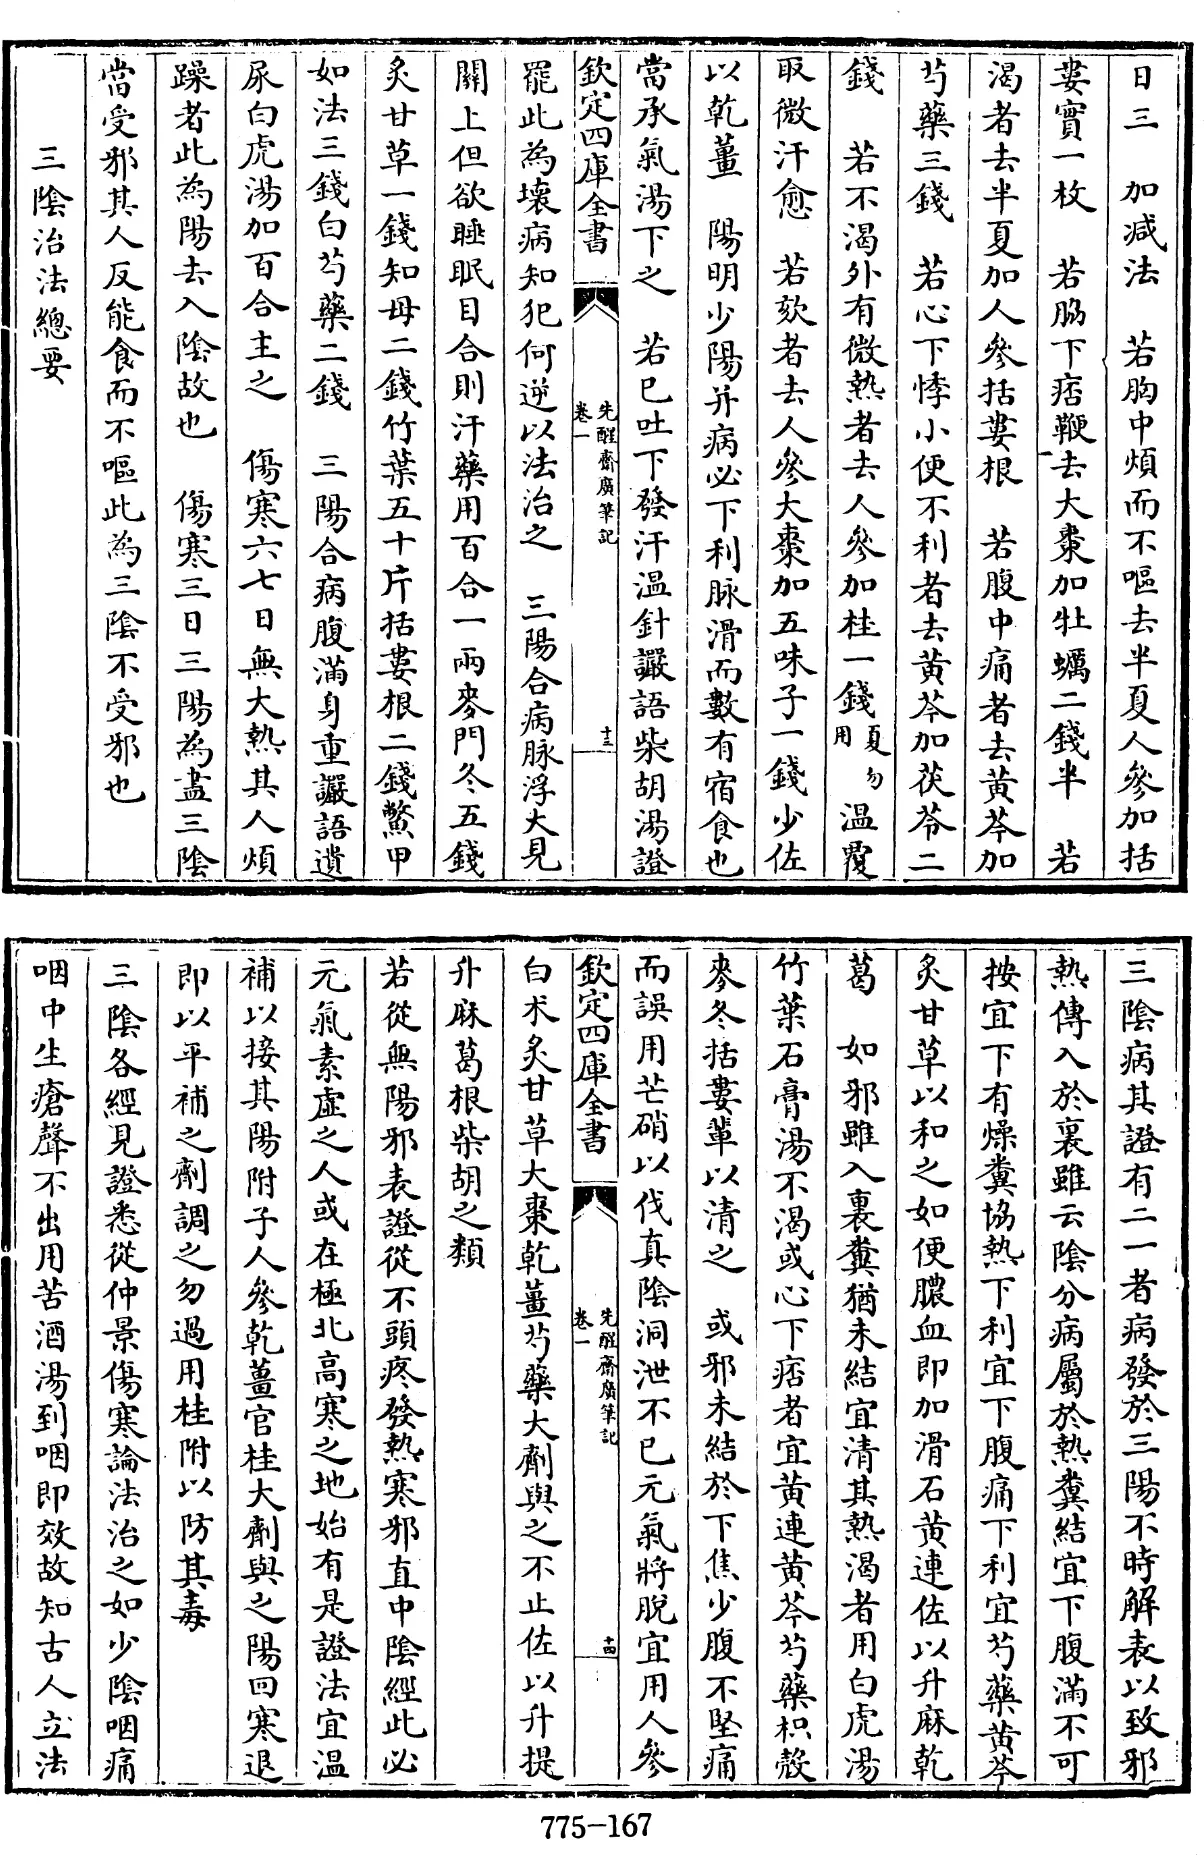 日三　加減法　若胸中煩而不嘔去半夏人參加括
蔞實一枚　若脇下痞鞕去大棗加牡蠣二錢半　若
渴者去半夏加人參括蔞根　若腹中痛者去黃芩加
芍藥三錢　若心下悸小便不利者去黃芩加茯苓二
錢　若不渴外有微熱者去人參加桂一錢夏勿用溫覆
取微汗愈　若欬者去人參大棗加五味子一錢少佐
以乾薑　陽明少陽并病必下利脉滑而數有宿食也
當承氣湯下之　若已吐下發汗溫針讝語柴胡湯證
欽定四庫全書
先醒齋廣筆記
卷一
十三
罷此為壞病知犯何逆以法治之　三陽合病脉浮大見
關上但欲睡眠目合則汗藥用百合一兩麥門冬五錢
炙甘草一錢知母二錢竹葉五十片括蔞根二錢鱉甲
如法三錢白芍藥二錢　三陽合病腹滿身重讝語遺
尿白虎湯加百合主之　傷寒六七日無大熱其人煩
躁者此為陽去入陰故也　傷寒三日三陽為盡三陰
當受邪其人反能食而不嘔此為三陰不受邪也
三陰治法總要
三陰病其證有二一者病發於三陽不時解表以致邪
熱傳入於裏雖云陰分病屬於熱糞結宜下腹滿不可
按宜下有燥糞協熱下利宜下腹痛下利宜芍藥黃芩
炙甘草以和之如便膿血即加滑石黃連佐以升麻乾
葛　如邪雖入裏糞猶未結宜清其熱渴者用白虎湯
竹葉石膏湯不渴或心下痞者宜黃連黃芩芍藥枳殼
麥冬括蔞輩以清之　或邪未結於下焦少腹不堅痛
而誤用芒硝以伐真陰洞泄不已元氣將脫宜用人參
欽定四庫全書
先醒齋廣筆記
卷一
十四
白朮炙甘草大棗乾薑芍藥大劑與之不止佐以升提
升麻葛根柴胡之類
若從無陽邪表證從不頭疼發熱寒邪直中陰經此必
元氣素虛之人或在極北高寒之地始有是證法宜溫
補以接其陽附子人參乾薑官桂大劑與之陽回寒退
即以平補之劑調之勿過用桂附以防其毒
三陰各經見證悉從仲景傷寒論法治之如少陰咽痛
咽中生瘡聲不出用苦酒湯到咽即效故知古人立法
775-167